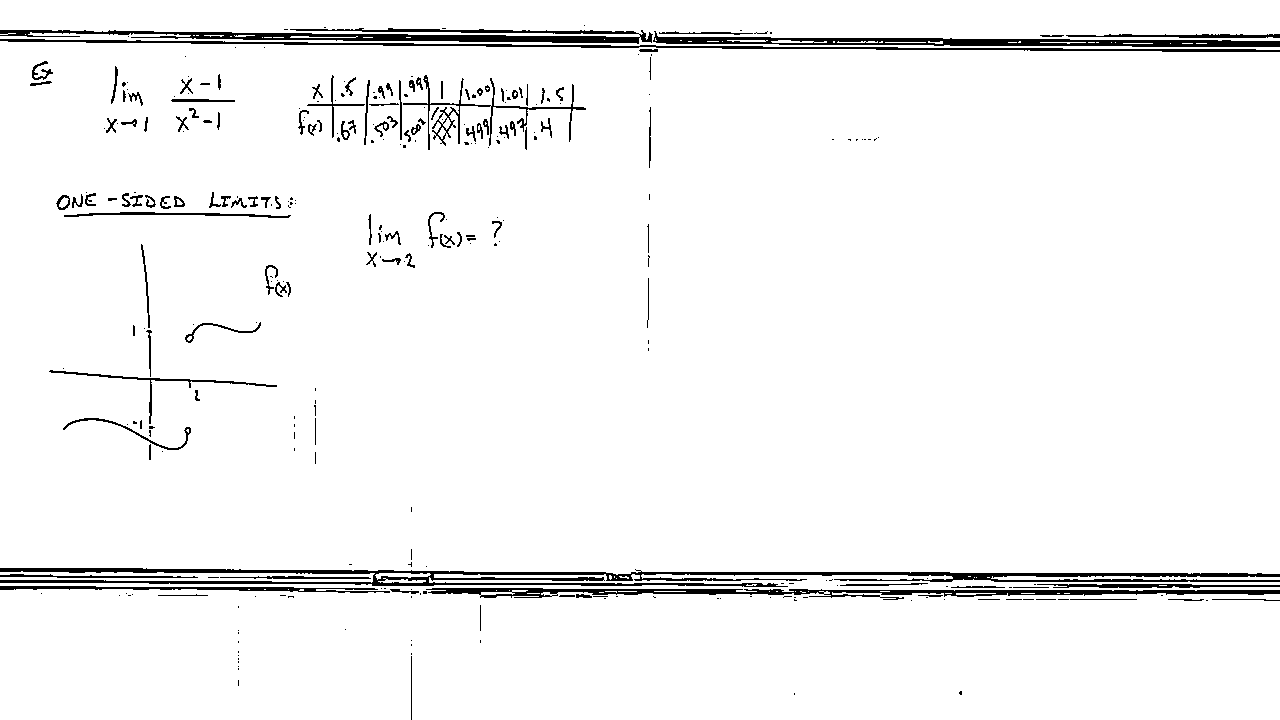 Ex
lim x→1 (x-1)/(x²-1)
x | .5 | .99 | .999 | 1 | 1.001 | 1.01 | 1.5
f(x) | .67 | .503 | .5003 | | .499 | .497 | .4
ONE-SIDED LIMITS:
lim x→2 f(x) = ?
f(x)
1
2
-1